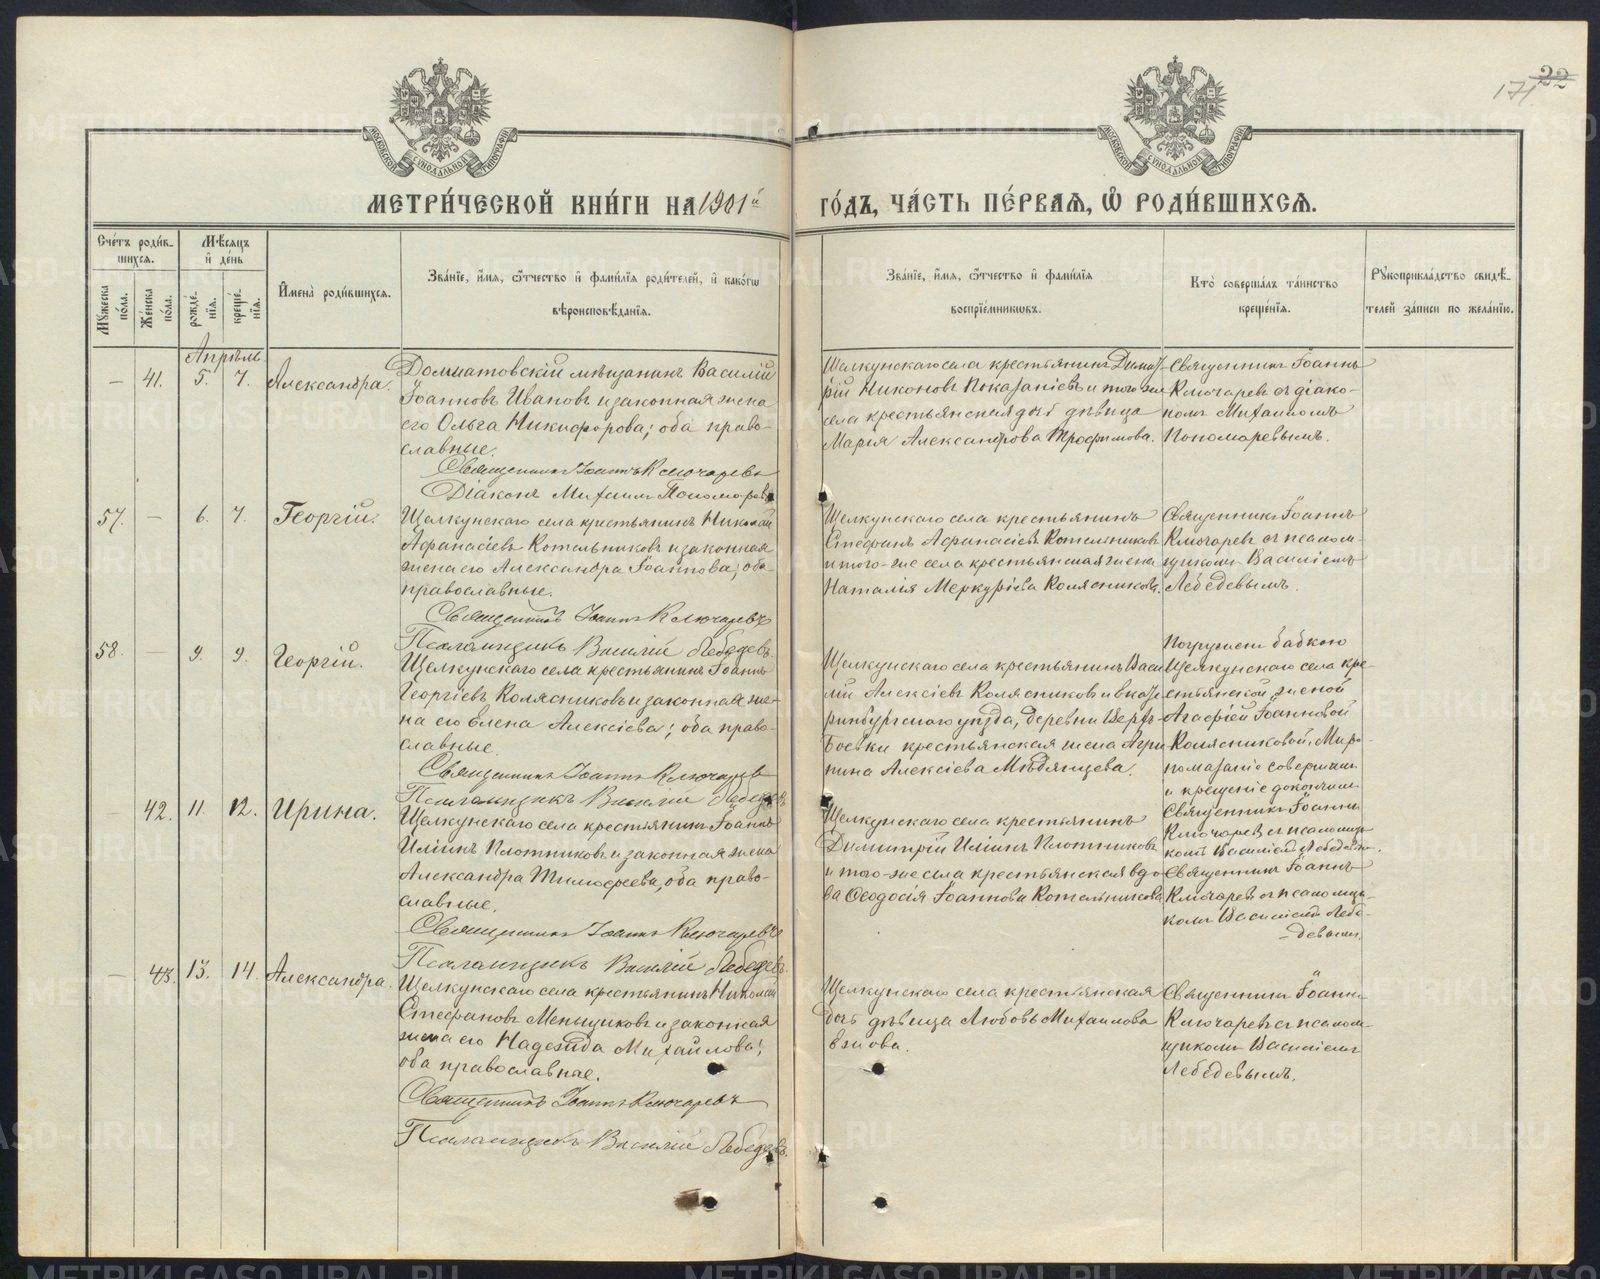 22
171
МОСКОВСКОЙ СѴНОДАЛЬНОЙ ТИПОГРАФІИ
МОСКОВСКОЙ СѴНОДАЛЬНОЙ ТИПОГРАФІИ
МЕТРИ́ЧЕСКОЙ КНИ́ГИ НА 1901й
ГО́ДЪ, ЧА́СТЬ ПЕ́РВАЯ, Ѽ РОДИ́ВШИХСЯ.
Сче́тъ роди́вшихся.
Мѣ́сяцъ и҆ де́нь
Мꙋ́жеска по́ла.
Же́нска по́ла.
рожде́нїя.
креще́нїя.
И҆мена̀ роди́вшихся.
Зва́нїе, и҆́мя, ѻ҆́тчество и҆ фами́лїя роди́телей, и҆ како́гѡ
вѣроисповѣ́данїя.
Зва́нїе, и҆́мя, ѻ҆́тчество и҆ фами́лїя
воспрїе́мникѡвъ.
Кто̀ соверша́лъ та́инство
креще́нїя.
Рꙋкоприкла́дство свидѣ́телей за́писи по жела́нїю.
Апрѣль
— 41. 5. 7. Александра.
Долматовскій мѣщанинъ Василій
Іоанновъ Ивановъ и законная жена
его Ольга Никифорова; оба право-
славные.
Священникъ Іоаннъ Ключаревъ
Діаконъ Михаилъ Пономаревъ
Щелкунскаго села крестьянинъ Димит-
рій Никоновъ Показаньевъ и того же
села крестьянская дочь дѣвица
Марія Александрова Трофимова.
Священникъ Іоаннъ
Ключаревъ съ діако-
номъ Михаиломъ
Пономаревымъ.
57. — 6. 7. Георгій.
Щелкунскаго села крестьянинъ Николай
Афанасіевъ Котельниковъ и законная
жена его Александра Іоаннова; оба
православные.
Священникъ Іоаннъ Ключаревъ
Псаломщикъ Василій Лебедевъ.
Щелкунскаго села крестьянинъ
Стефанъ Афанасіевъ Котельниковъ
и того-же села крестьянская жена
Наталія Меркуріева Колясникова.
Священникъ Іоаннъ
Ключаревъ съ псалом-
щикомъ Василіемъ
Лебедевымъ.
58. — 9. 9. Георгій.
Щелкунскаго села крестьянинъ Іоаннъ
Георгіевъ Колясниковъ и законная же-
на его Елена Алексіева; оба право-
славные.
Священникъ Іоаннъ Ключаревъ
Псаломщикъ Василій Лебедевъ
Щелкунскаго села крестьянинъ Васи-
лій Алексіевъ Колясниковъ и Екате-
ринбургскаго уѣзда, деревни Верхъ-
Боевки крестьянская жена Агри-
пина Алексіева Мѣдянцева.
Погруженъ бабкою
Щелкунскаго села кре-
стьянской женой
Агафіей Іоанновой
Колясниковой, Миро-
помазаніе совершили
и крещеніе докончили
Священникъ Іоаннъ
Ключаревъ съ псаломщи-
комъ Василіемъ Лебедевымъ.
— 42. 11. 12. Ирина.
Щелкунскаго села крестьянинъ Іоаннъ
Иліинъ Плотниковъ и законная жена
Александра Тимофеева, оба право-
славные.
Священникъ Іоаннъ Ключаревъ
Псаломщикъ Василій Лебедевъ.
Щелкунскаго села крестьянинъ
Димитрій Иліинъ Плотниковъ
и того-же села крестьянская вдо-
ва Ѳеодосія Іоаннова Котельникова
Священникъ Іоаннъ
Ключаревъ съ псаломщи-
комъ Василіемъ Лебе-
девымъ.
— 43. 13. 14. Александра.
Щелкунскаго села крестьянинъ Николай
Стефановъ Меньщиковъ и законная
жена его Надежда Михаилова;
оба православные.
Священникъ Іоаннъ Ключаревъ
Псаломщикъ Василій Лебедевъ.
Щелкунскаго села крестьянская
дочь дѣвица Любовь Михаилова
Священникъ Іоаннъ
Ключаревъ съ псалом-
щикомъ Василіемъ
Лебедевымъ.